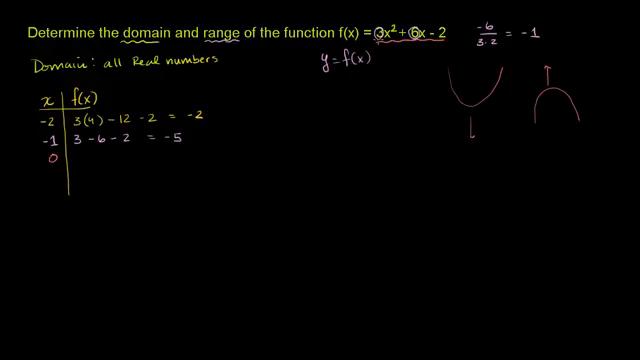 Determine the domain and range of the function f(x) = 3x² + 6x - 2
-6/3·2 = -1
Domain: all Real numbers
y = f(x)
x f(x)
-2 3(4) - 12 - 2 = -2
-1 3 - 6 - 2 = -5
0